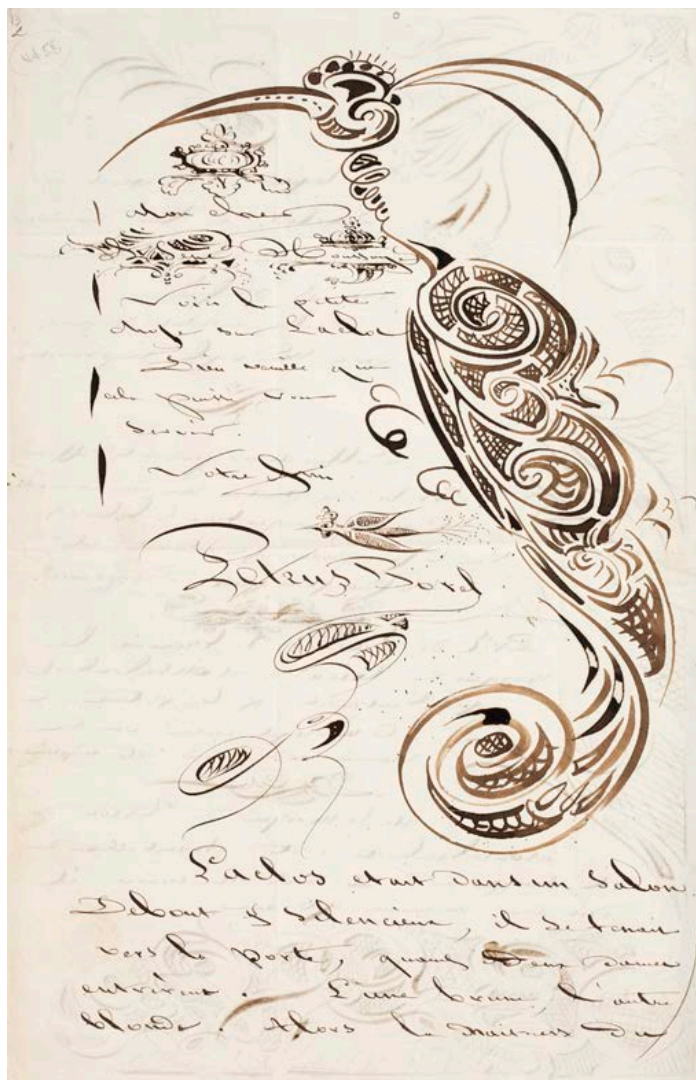 Mon cher
Houssaye
Voici la petite
chose sur Laclos
Dieu veuille que
cela puisse vous
servir.
Votre Ami
Petrus Borel
Laclos etait dans un Salon
Debout & Silencieux, il Se tenait
vers la porte, quand Deux Dames
entrèrent. L'une brune, l'autre
blonde. Alors la Maitress Du